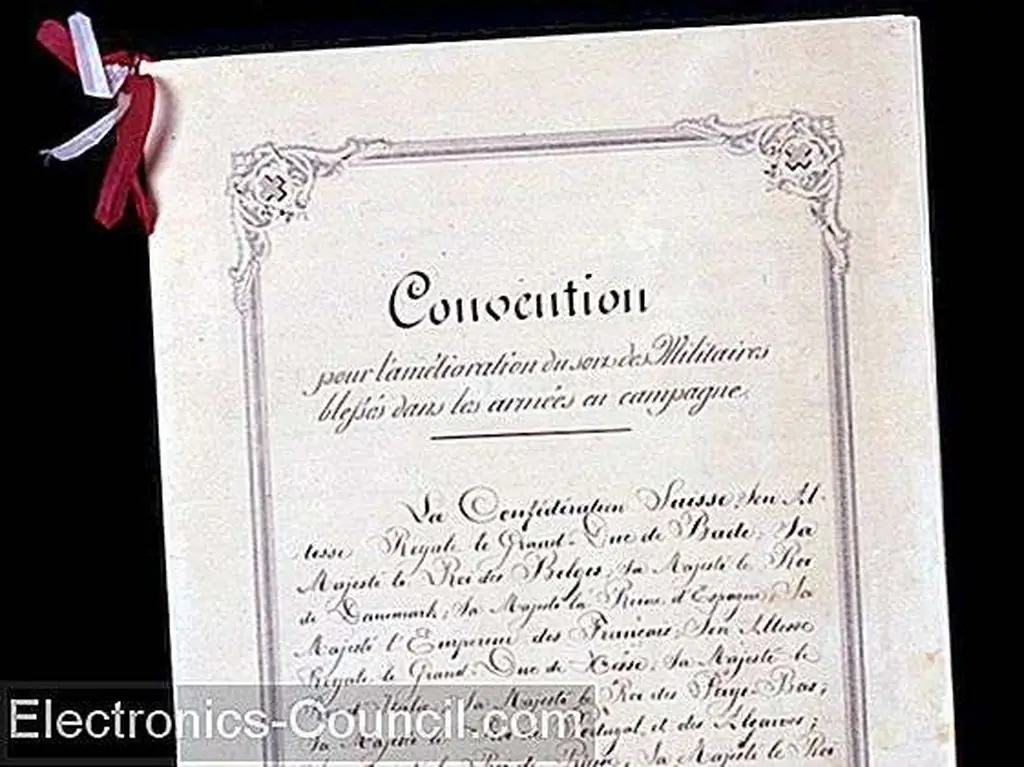 Convention
pour l'amélioration du sort des Militaires
blessés dans les armées en campagne.
La Confédération Suisse; Son Al-
tesse Royale le Grand-Duc de Bade; Sa
Majesté le Roi des Belges; Sa Majesté le Roi
de Danemark; Sa Majesté la Reine d'Espagne; Sa
Majesté l'Empereur des Français; Son Altesse
Royale le Grand-Duc de Hesse; Sa Majesté le
Roi d'Italie; Sa Majesté le Roi des Pays-Bas;
Sa Majesté le Portugal et des Algarves;
Sa Majesté le Roi de Sa Majesté le Roi
Electronics-Council.com